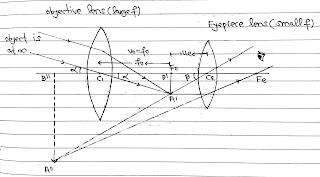 objective lens (large f)
Eyepiece lens (small f)
object is
at ∞
v₀=f₀
f₀
uee
α
α
β
B''
C₁
B'
F₀
C₂
Fe
A'
A''